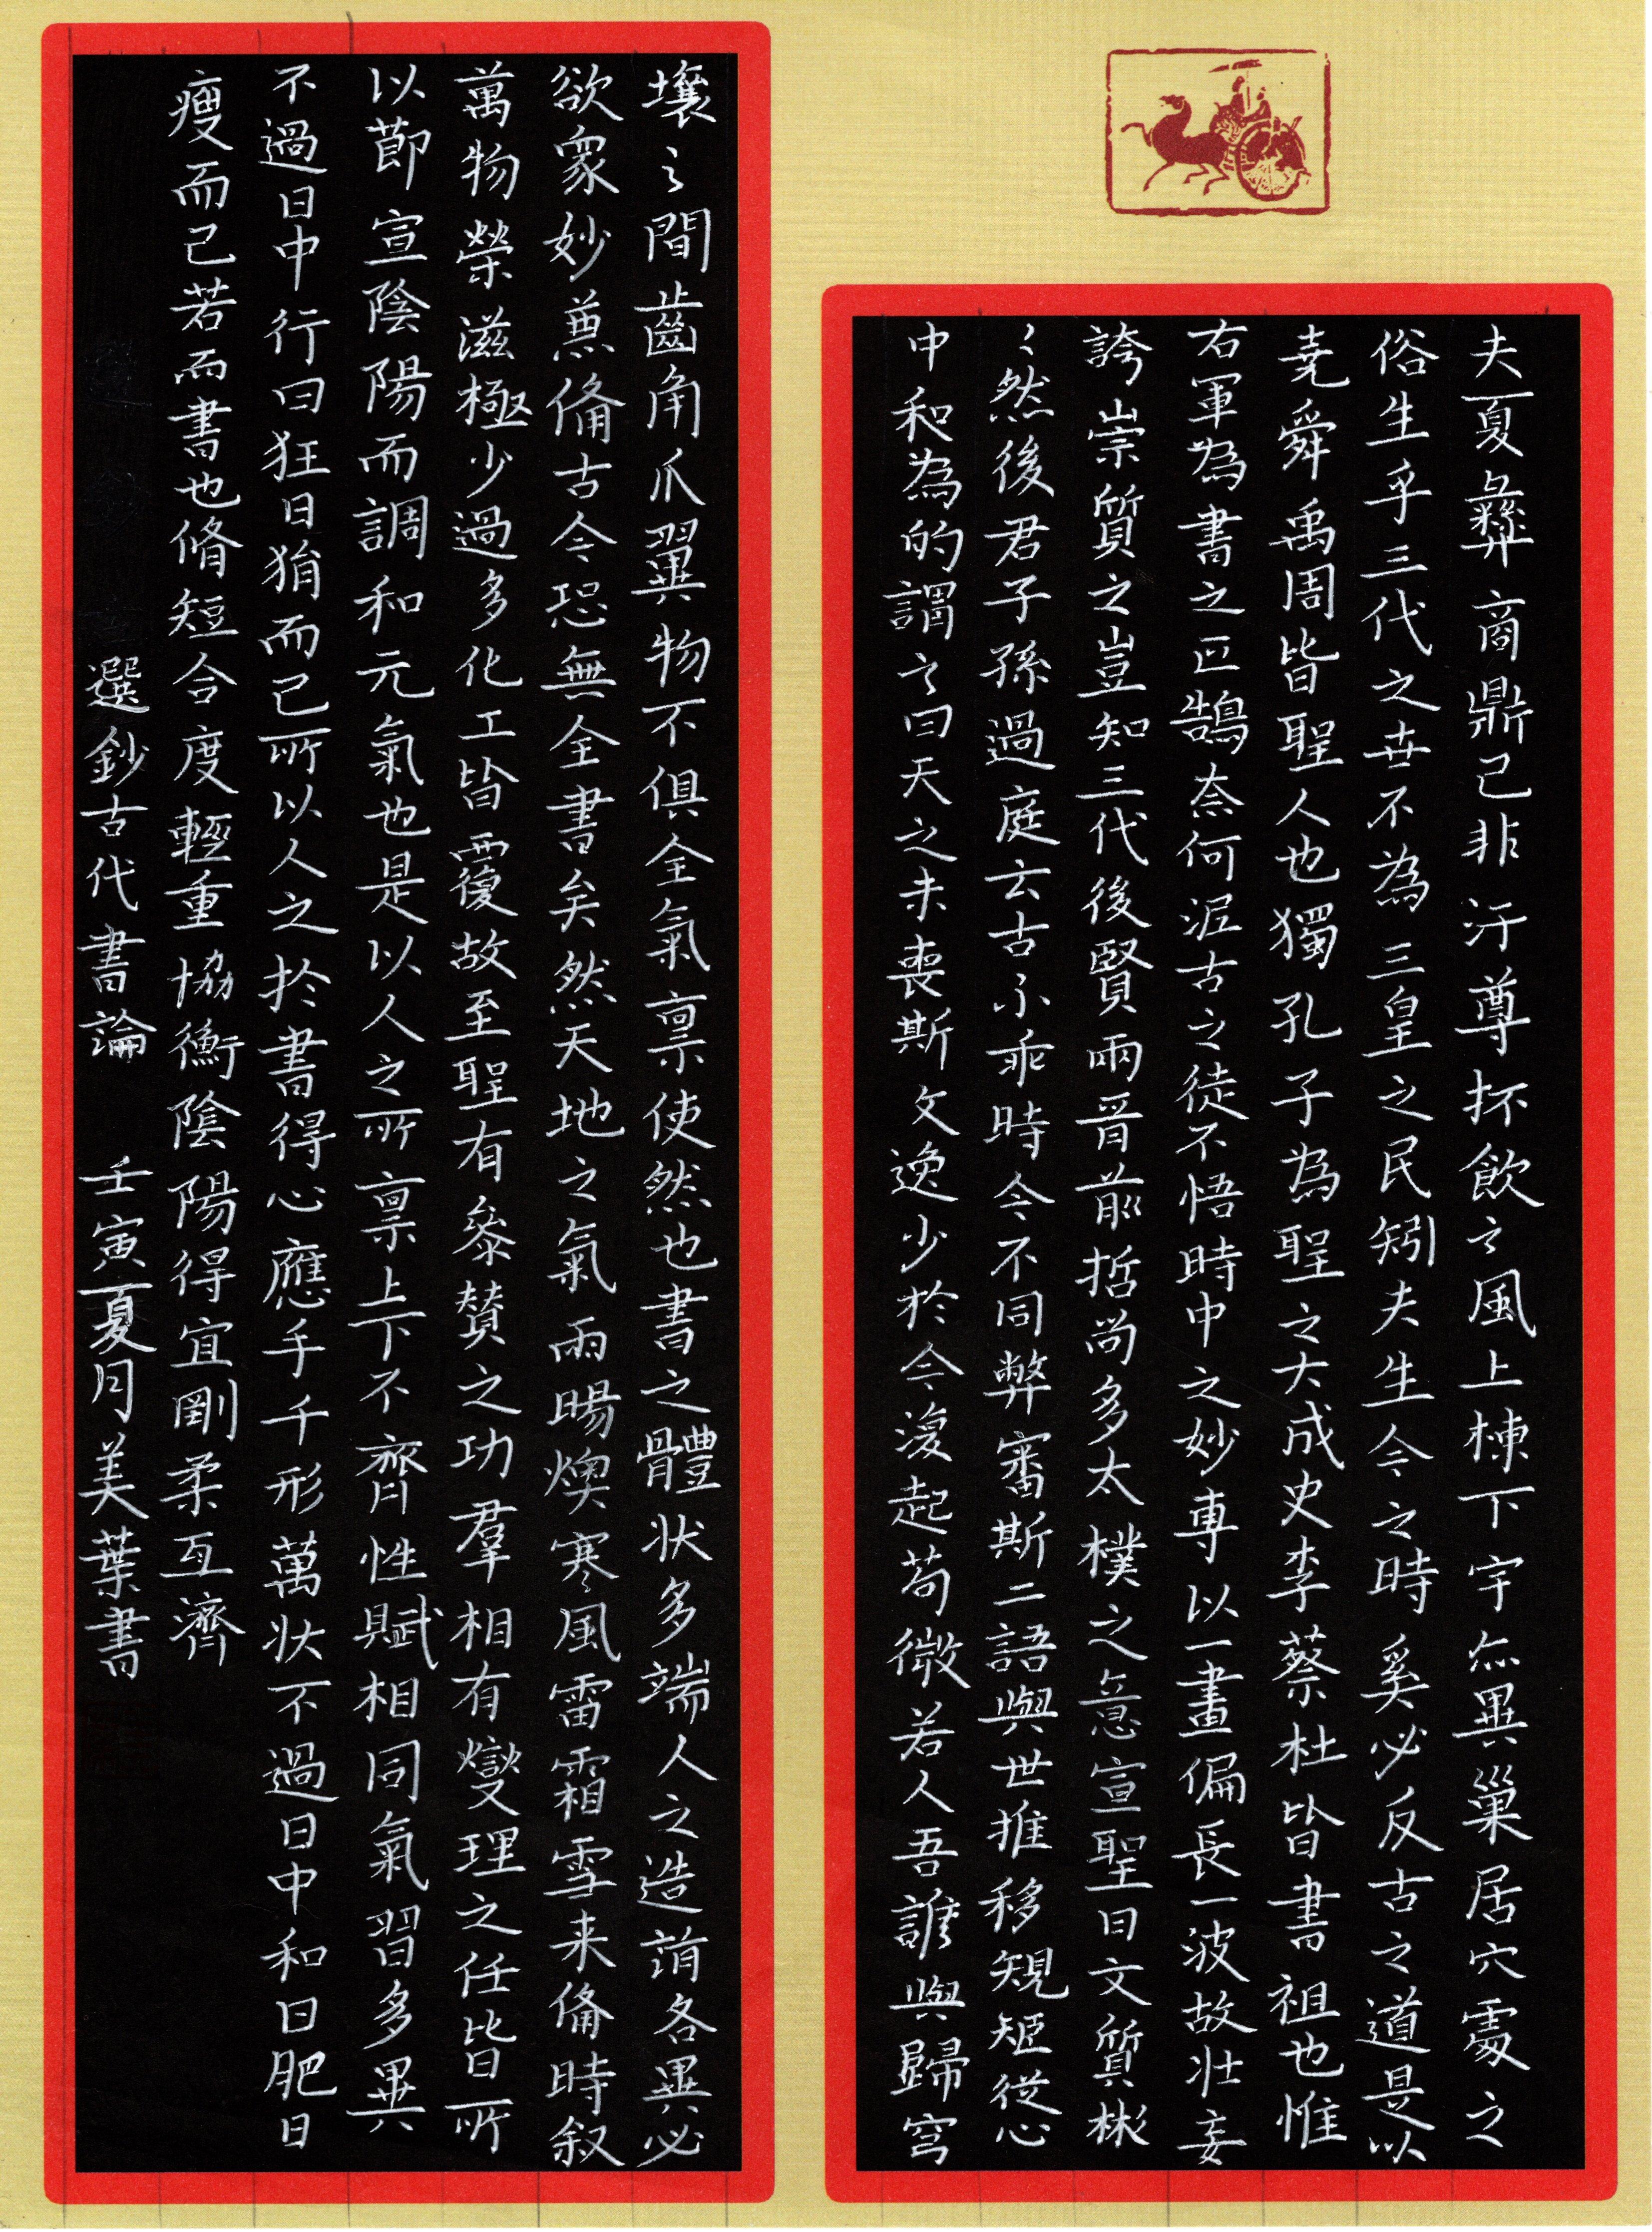 夫夏彝商鼎已非汙尊抔飲之風上棟下宇亦異巢居穴處之
俗生乎三代之世不為三皇之民矧夫生今之時奚必反古之道是以
堯舜禹周皆聖人也獨孔子為聖之大成史李蔡杜皆書祖也惟
右軍為書之正鵠奈何泥古之徒不悟時中之妙專以一畫偏長一波故壯妄
誇崇質之豈知三代後賢兩晉前哲尚多太樸之意宣聖曰文質彬
彬然後君子孫過庭云古不乖時今不同弊審斯二語與世推移規矩從心
中和為的謂之曰天之未喪斯文逸少於今復起苟微若人吾誰與歸穹
壤之間齒角爪翼物不俱全氣稟使然也書之體狀多端人之造詣各異必
欲眾妙兼備古今恐無全書矣然天地之氣雨暘燠寒風雷霜雪来備時叙
萬物榮滋極少過多化工皆覆故至聖有參贊之功羣相有燮理之任皆所
以節宣陰陽而調和元氣也是以人之所稟上下不齊性賦相同氣習多異
不過曰中行曰狂曰狷而已所以人之於書得心應手千形萬状不過曰中和曰肥曰
瘦而已若而書也脩短合度輕重協衡陰陽得宜剛柔互濟
選鈔古代書論 壬寅夏月美葉書